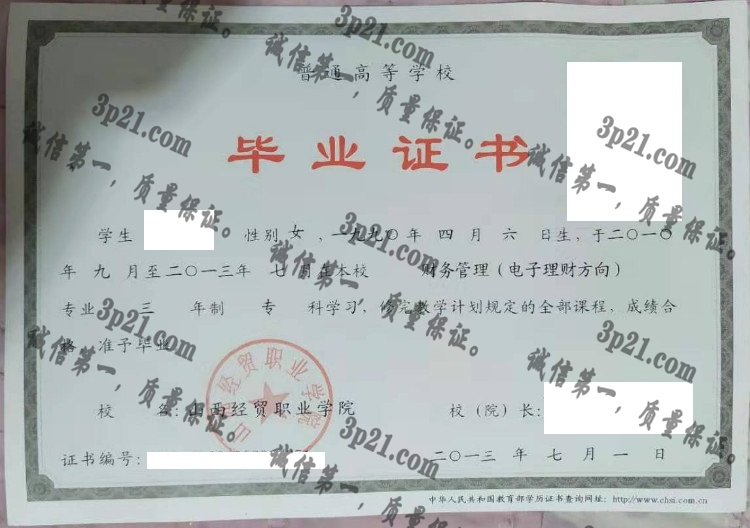 普通高等学校
毕业证书
学生 性别 女 ,一九九〇年 四 月 六 日生,于二〇一〇
年 九 月至二〇一三年 七 月在本校 财务管理(电子理财方向)
专业 三 年制 专 科学习,修完教学计划规定的全部课程,成绩合
格,准予毕业。
校 名:山西经贸职业学院 校(院)长:
证书编号: 二〇一三年 七 月 一 日
中华人民共和国教育部学历证书查询网址:http://www.chsi.com.cn
山西经贸职业学院
3p21.com
诚信第一,质量保证。
3p21.com
诚信第一,质量保证。
3p21.com
诚信第一,质量保证。
3p21.com
诚信第一,质量保证。
3p21.com
诚信第一,质量保证。
3p21.com
诚信第一,质量保证。
3p21.com
诚信第一,质量保证。
3p21.com
诚信第一,质量保证。